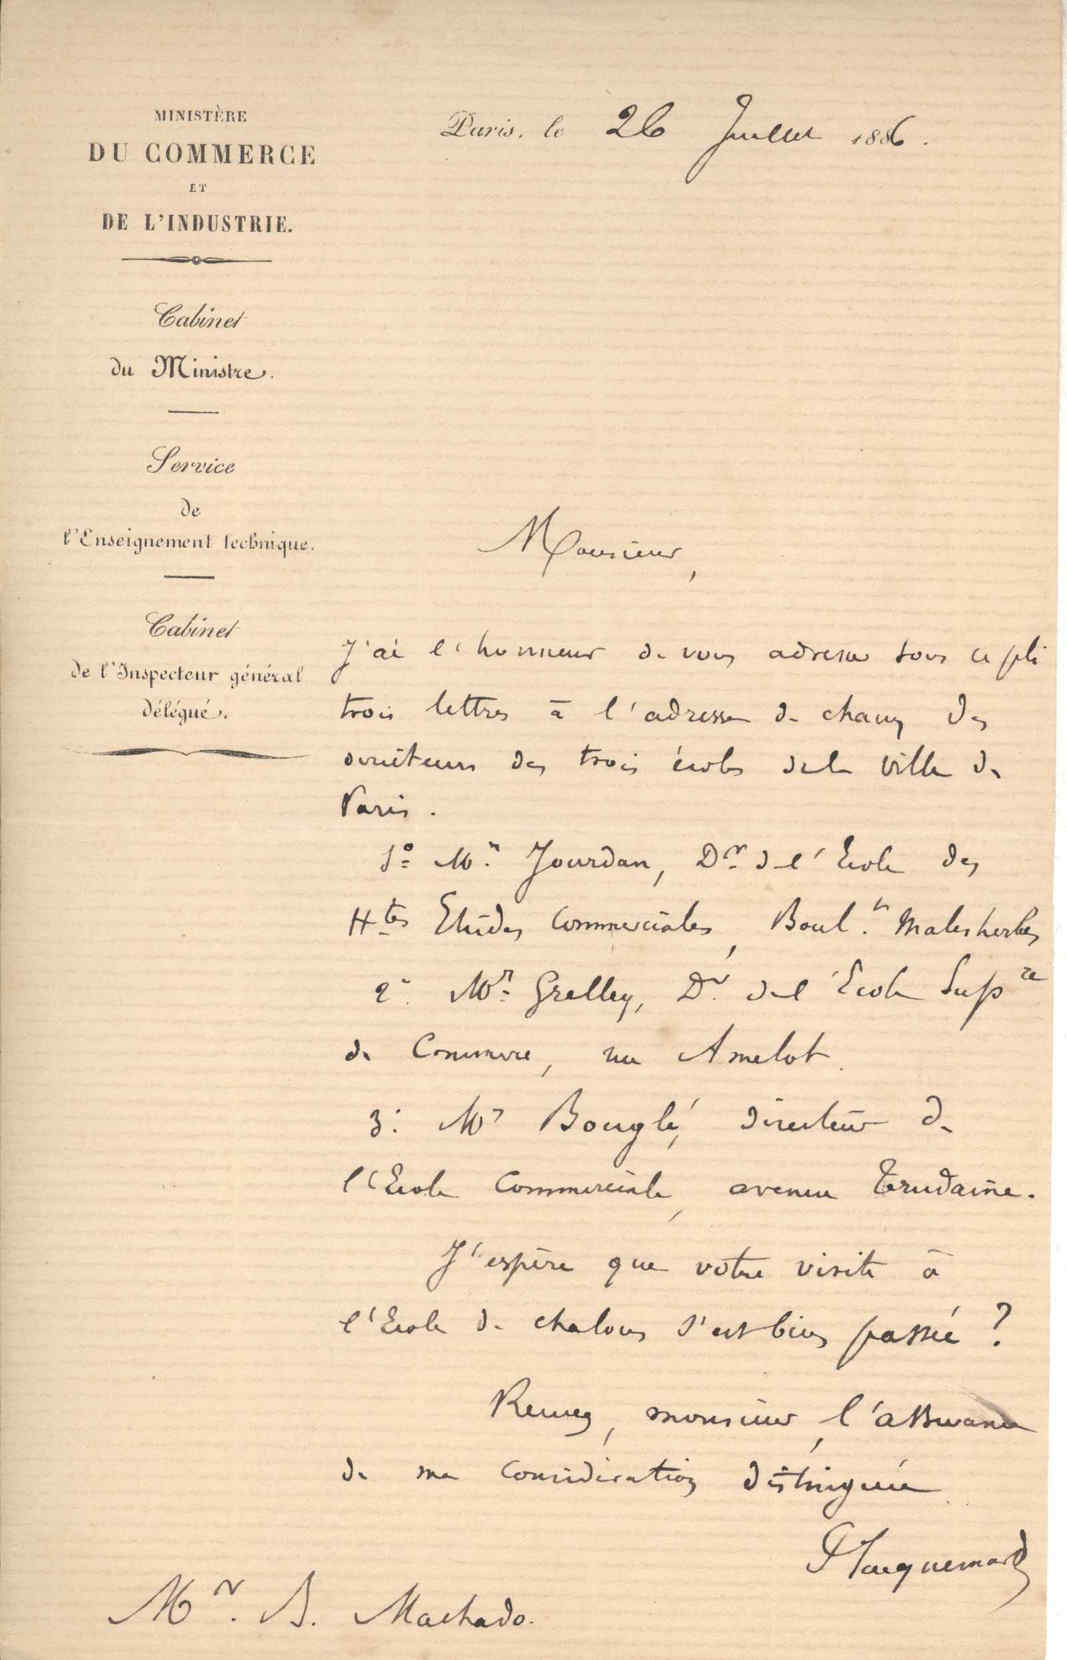 MINISTÈRE
DU COMMERCE
ET
DE L'INDUSTRIE.
Cabinet
du Ministre.
Service
de
l'Enseignement technique.
Cabinet
de l'Inspecteur général
délégué.
Paris, le 26 Juillet 1886.
Monsieur,
J'ai l'honneur de vous adresser sous ce pli
trois lettres à l'adresse de chacun des
directeurs des trois écoles de la ville de
Paris.
1º Mr Jourdan, Dr de l'Ecole des
Htes Etudes Commerciales, Boul. Malesherbes
2º. Mr Grelley, Dr. de l'Ecole Supre
de Commerce, rue Amelot.
3º. Mr Bouglé, directeur de
l'Ecole Commerciale, avenue Trudaine.
J'espère que votre visite à
l'Ecole de chalons s'est bien passée ?
Recevez, monsieur, l'assurance
de ma considération distinguée
P Jacquemard
Mr. B. Machado.